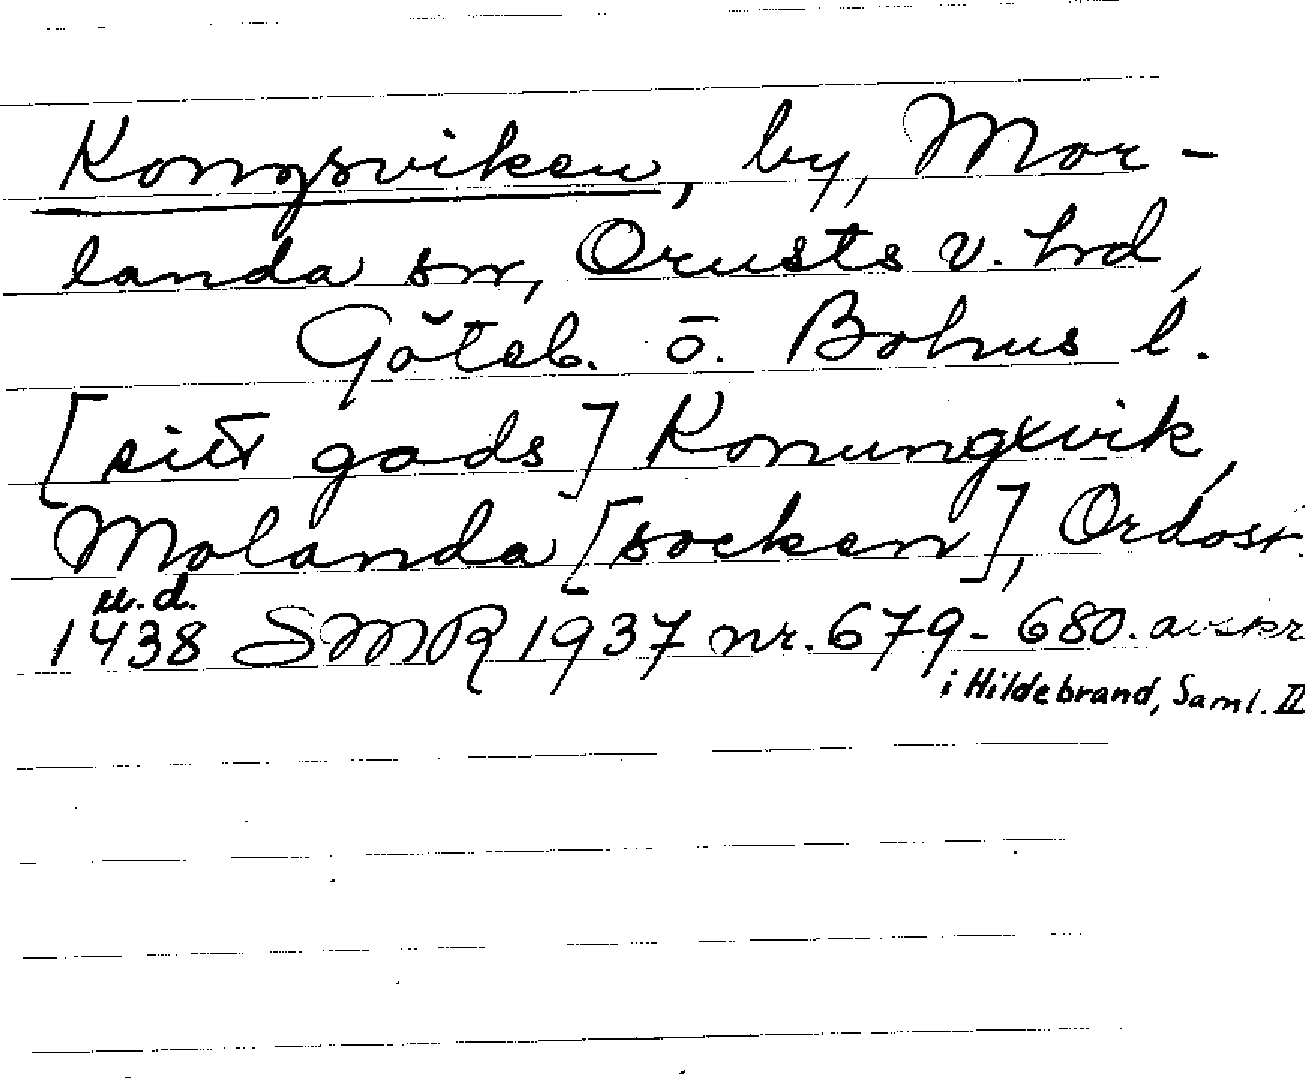 Kongsviken, by, Mor-
landa sn, Orusts v. hrd,
Göteb. o. Bohus l.
[sitt gods] Konungxvik,
Molanda [socken], Ordost.
u.d.
1438 SMR 1937 nr. 679-680. avskr
i Hildebrand, Saml. II